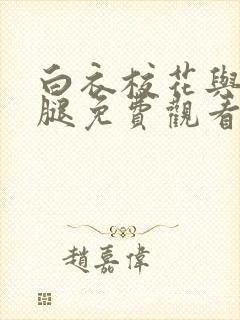 白衣校花與
腿免費觀看
趙嘉偉